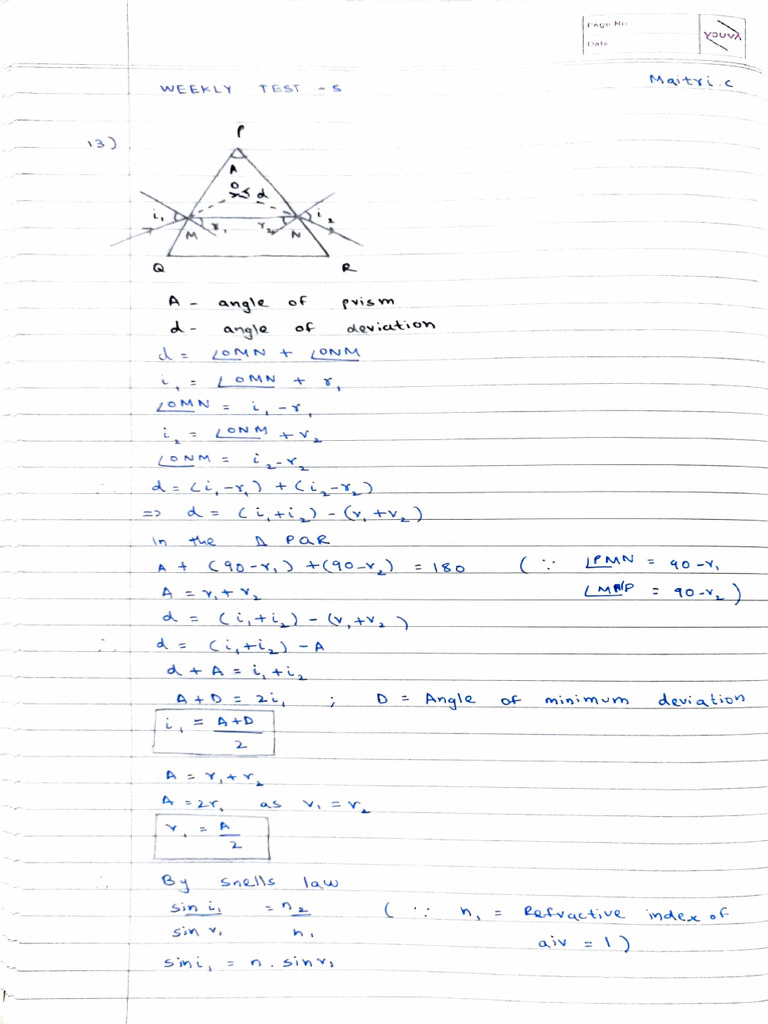 Page No
Date
YOUVA
WEEKLY TEST - 5
Maitri.c
13)
P
A
O
d
i₁
i₂
M
r₁
r₂
N
Q
R
A - angle of prism
d - angle of deviation
d = ∠OMN + ∠ONM
i₁ = ∠OMN + r₁
∠OMN = i₁ - r₁
i₂ = ∠ONM + r₂
∠ONM = i₂ - r₂
∴ d = (i₁-r₁) + (i₂-r₂)
=> d = (i₁+i₂) - (r₁+r₂)
In the Δ PQR
A + (90-r₁) + (90-r₂) = 180 (∵ ∠PMN = 90-r₁
A = r₁+r₂ ∠MNP = 90-r₂)
d = (i₁+i₂) - (r₁+r₂)
∴ d = (i₁+i₂) - A
d + A = i₁+i₂
A+D = 2i₁ ; D = Angle of minimum deviation
i₁ = A+D
2
A = r₁+r₂
A = 2r₁ as r₁ = r₂
r₁ = A
2
∴ By snells law
sin i₁ = n₂ (∵ n₁ = Refractive index of
sin r₁ n₁ air = 1)
sin i₁ = n . sin r₁